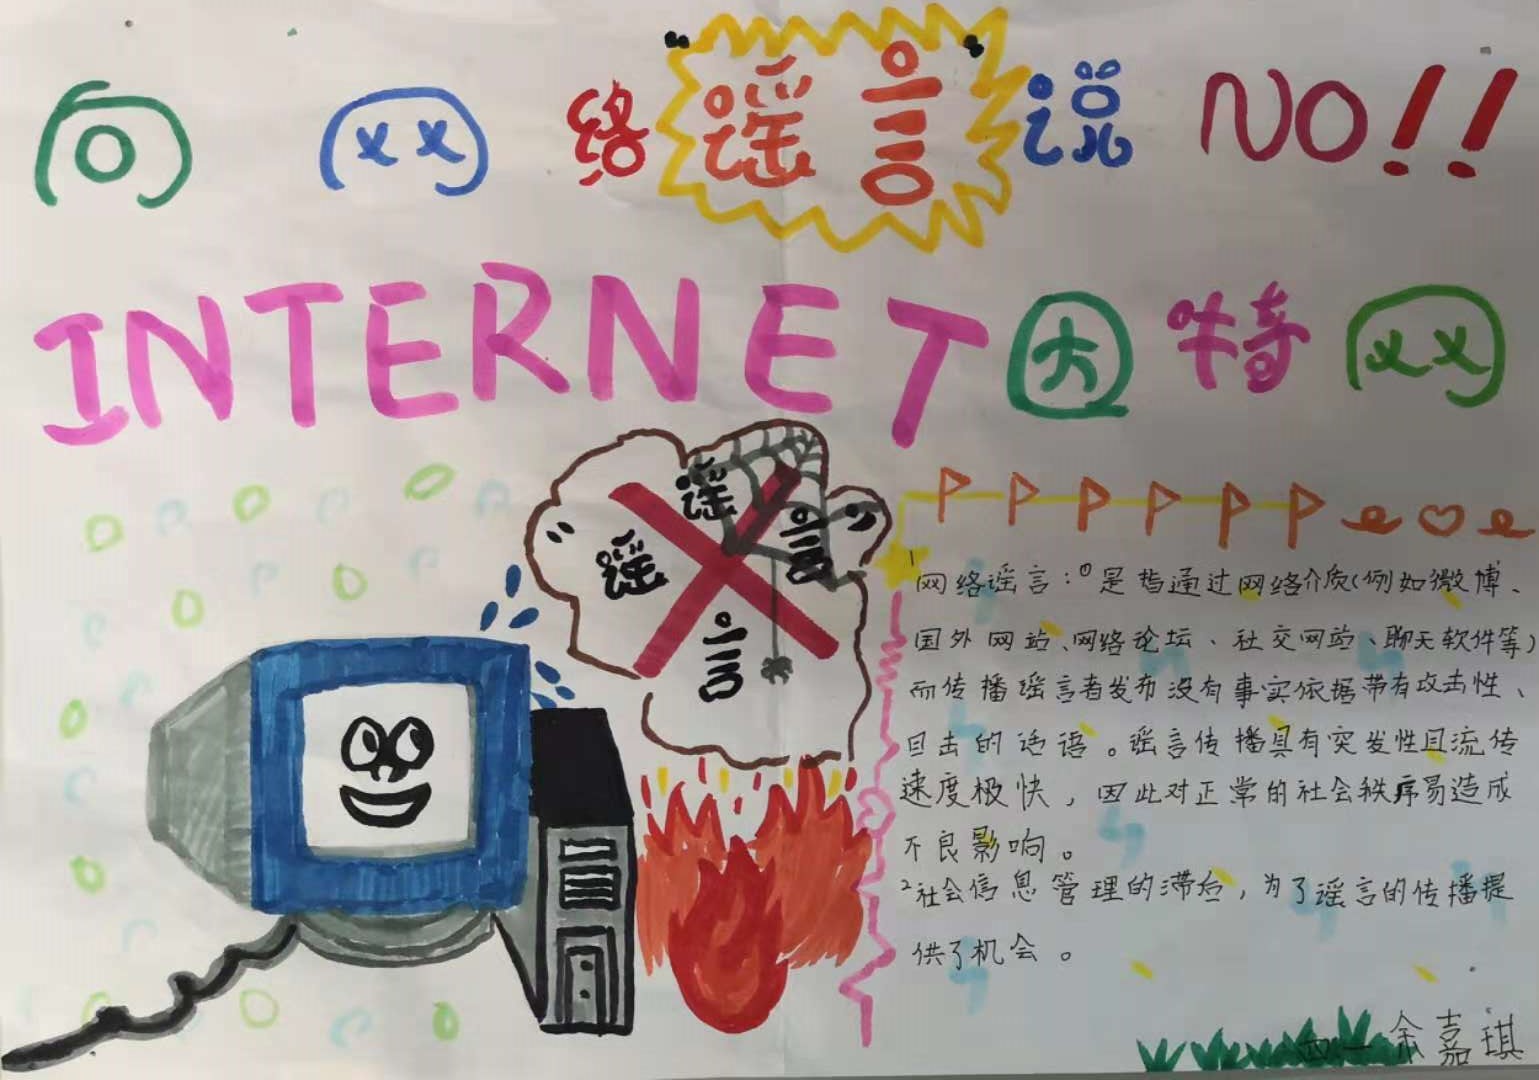 向网络谣言说NO!!
INTERNET因特网
谣
谣
言
言
1网络谣言:①是指通过网络介质(例如微博、
国外网站、网络论坛、社交网站、聊天软件等)
而传播谣言者发布没有事实依据带有攻击性、
目击的话语。谣言传播具有突发性且流传
速度极快,因此对正常的社会秩序易造成
不良影响。
2社会信息管理的滞后,为了谣言的传播提
供了机会。
四一余嘉琪